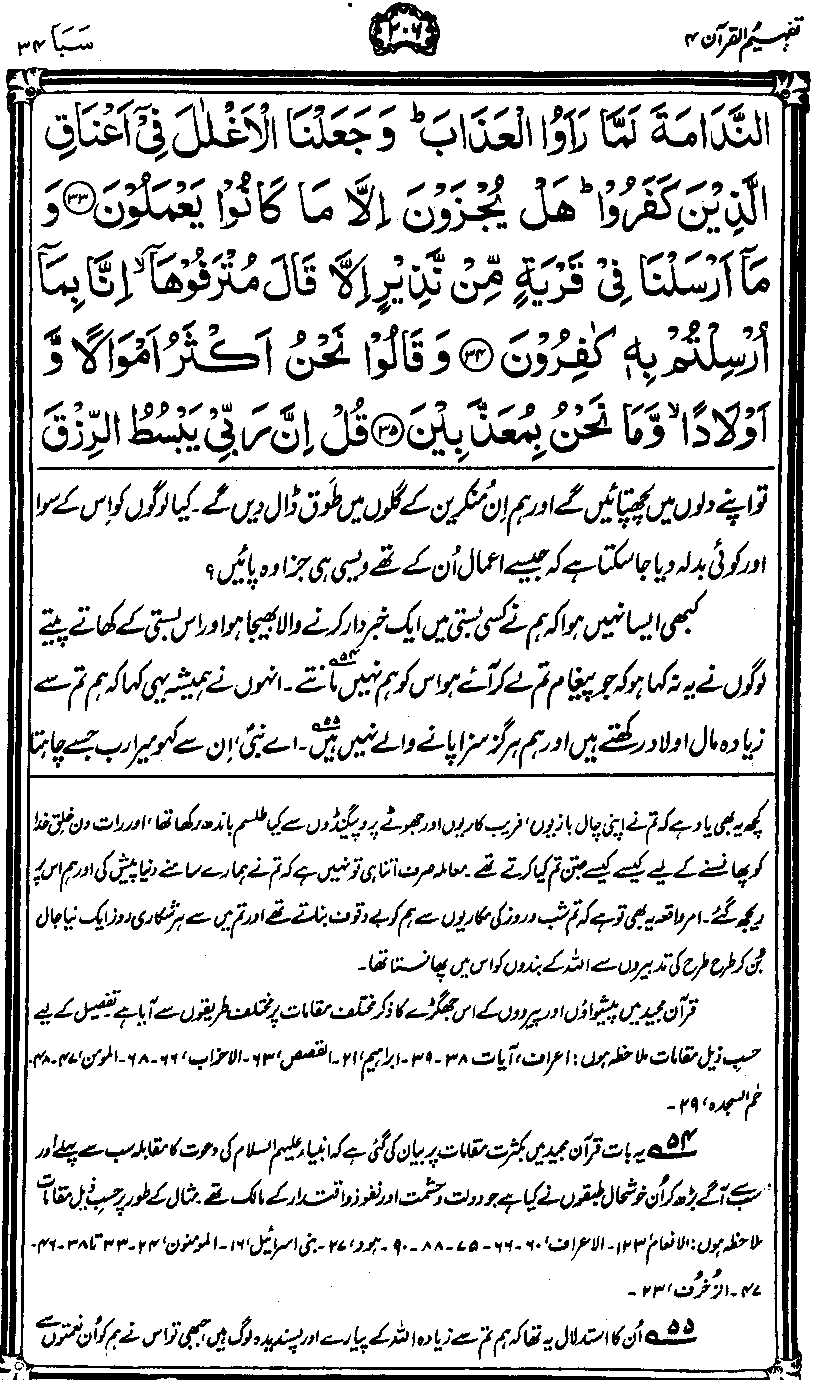 تفہیم القرآن ۴
۲۰۶
سَبَا ۳۴
النَّدَامَةَ لَمَّا رَاَوُا الْعَذَابَ ؕ وَجَعَلْنَا الْاَغْلٰلَ فِیْۤ اَعْنَاقِ
الَّذِیْنَ كَفَرُوْا ؕ هَلْ یُجْزَوْنَ اِلَّا مَا كَانُوْا یَعْمَلُوْنَ ﴿۳۳﴾ وَ
مَاۤ اَرْسَلْنَا فِیْ قَرْیَةٍ مِّنْ نَّذِیْرٍ اِلَّا قَالَ مُتْرَفُوْهَاۤ ۙ اِنَّا بِمَاۤ
اُرْسِلْتُمْ بِهٖ كٰفِرُوْنَ ﴿۳۴﴾ وَقَالُوْا نَحْنُ اَكْثَرُ اَمْوَالًا وَّ
اَوْلَادًا ۙ وَّمَا نَحْنُ بِمُعَذَّبِیْنَ ﴿۳۵﴾ قُلْ اِنَّ رَبِّیْ یَبْسُطُ الرِّزْقَ
تو اپنے دلوں میں پچھتائیں گے اور ہم اِن مُنکرین کے گلوں میں طَوق ڈال دیں گے۔ کیا لوگوں کو اِس کے سوا
اور کوئی بدلہ دیا جا سکتا ہے کہ جیسے اعمال اُن کے تھے ویسی ہی جزا وہ پائیں؟
کبھی ایسا نہیں ہوا کہ ہم نے کسی بستی میں ایک خبردار کرنے والا بھیجا ہو اور اس بستی کے کھاتے پیتے
لوگوں نے یہ نہ کہا ہو کہ جو پیغام تم لے کر آئے ہو اس کو ہم نہیں مانتے۵۴۔ انہوں نے ہمیشہ یہی کہا کہ ہم تم سے
زیادہ مال اولاد رکھتے ہیں اور ہم ہرگز سزا پانے والے نہیں ہیں۵۵۔ اے نبیؐ، اِن سے کہو میرا رب جسے چاہتا
کچھ یہ بھی یاد ہے کہ تم نے اپنی چال بازیوں، فریب کاریوں اور جھوٹے پروپیگنڈوں سے کیا طلسم باندھ رکھا تھا، اور رات دن خلقِ خدا
کو پھانسنے کے لیے کیسے کیسے جتن تم کیا کرتے تھے۔ معاملہ صرف اتنا ہی تو نہیں ہے کہ تم نے ہمارے سامنے دنیا پیش کی اور ہم اس پر
ریجھ گئے۔ امر واقعہ یہ بھی تو ہے کہ تم شب و روز کی مکاریوں سے ہم کو بے وقوف بناتے تھے اور تم میں سے ہر شکاری روز ایک نیا جال
بُن کر طرح طرح کی تدبیروں سے اللہ کے بندوں کو اس میں پھانستا تھا۔
قرآن مجید میں پیشواؤں اور پیروؤں کے اس جھگڑے کا ذکر مختلف مقامات پر مختلف طریقوں سے آیا ہے تفصیل کے لیے
حسبِ ذیل مقامات ملاحظہ ہوں: اعراف، آیات ۳۸-۳۹۔ ابراہیم، ۲۱۔ القصص، ۶۳۔ الاحزاب، ۶۶-۶۸۔ المومن، ۴۷-۴۸۔
حٰم السجدہ، ۲۹۔
۵۴ یہ بات قرآن مجید میں بکثرت مقامات پر بیان کی گئی ہے کہ انبیاء علیہم السلام کی دعوت کا مقابلہ سب سے پہلے اور
سب سے آگے بڑھ کر اُن خوشحال طبقوں نے کیا ہے جو دولت و حشمت اور نفوذ و اقتدار کے مالک تھے۔ مثال کے طور پر حسبِ ذیل مقامات
ملاحظہ ہوں: الانعام، ۱۲۳۔ الاعراف، ۶۰-۶۶-۷۵-۸۸-۹۰۔ ہود، ۲۷۔ بنی اسرائیل، ۱۶۔ المومنون، ۲۴-۳۳ تا ۳۸-۴۶-
۴۷۔ الزُّخرُف، ۲۳۔
۵۵ اُن کا استدلال یہ تھا کہ ہم تم سے زیادہ اللہ کے پیارے اور پسندیدہ لوگ ہیں، جبھی تو اس نے ہم کو اُن نعمتوں سے